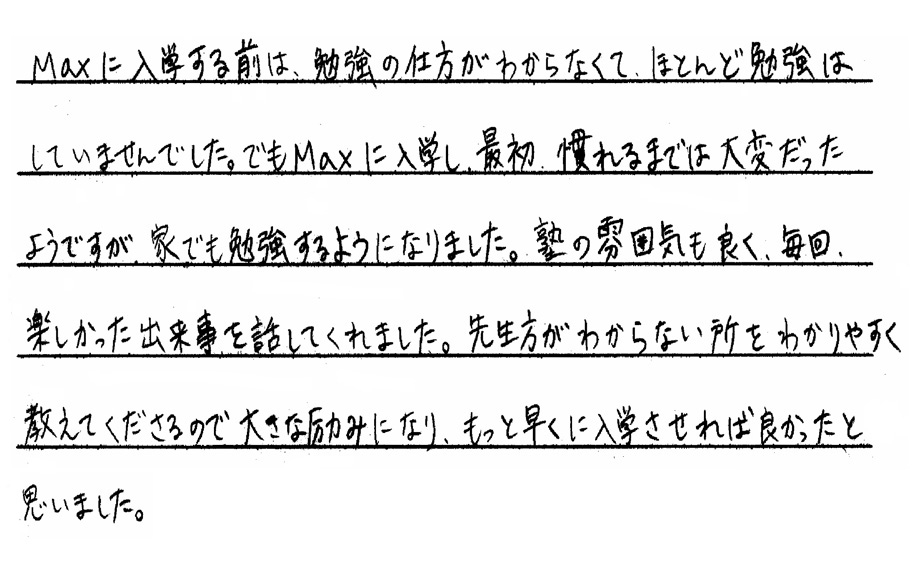 Maxに入学する前は、勉強の仕方がわからなくて、ほとんど勉強は
していませんでした。でもMaxに入学し、最初、慣れるまでは大変だった
ようですが、家でも勉強するようになりました。塾の雰囲気も良く、毎回、
楽しかった出来事を話してくれました。先生方がわからない所をわかりやすく
教えてくださるので大きな励みになり、もっと早くに入学させれば良かったと
思いました。